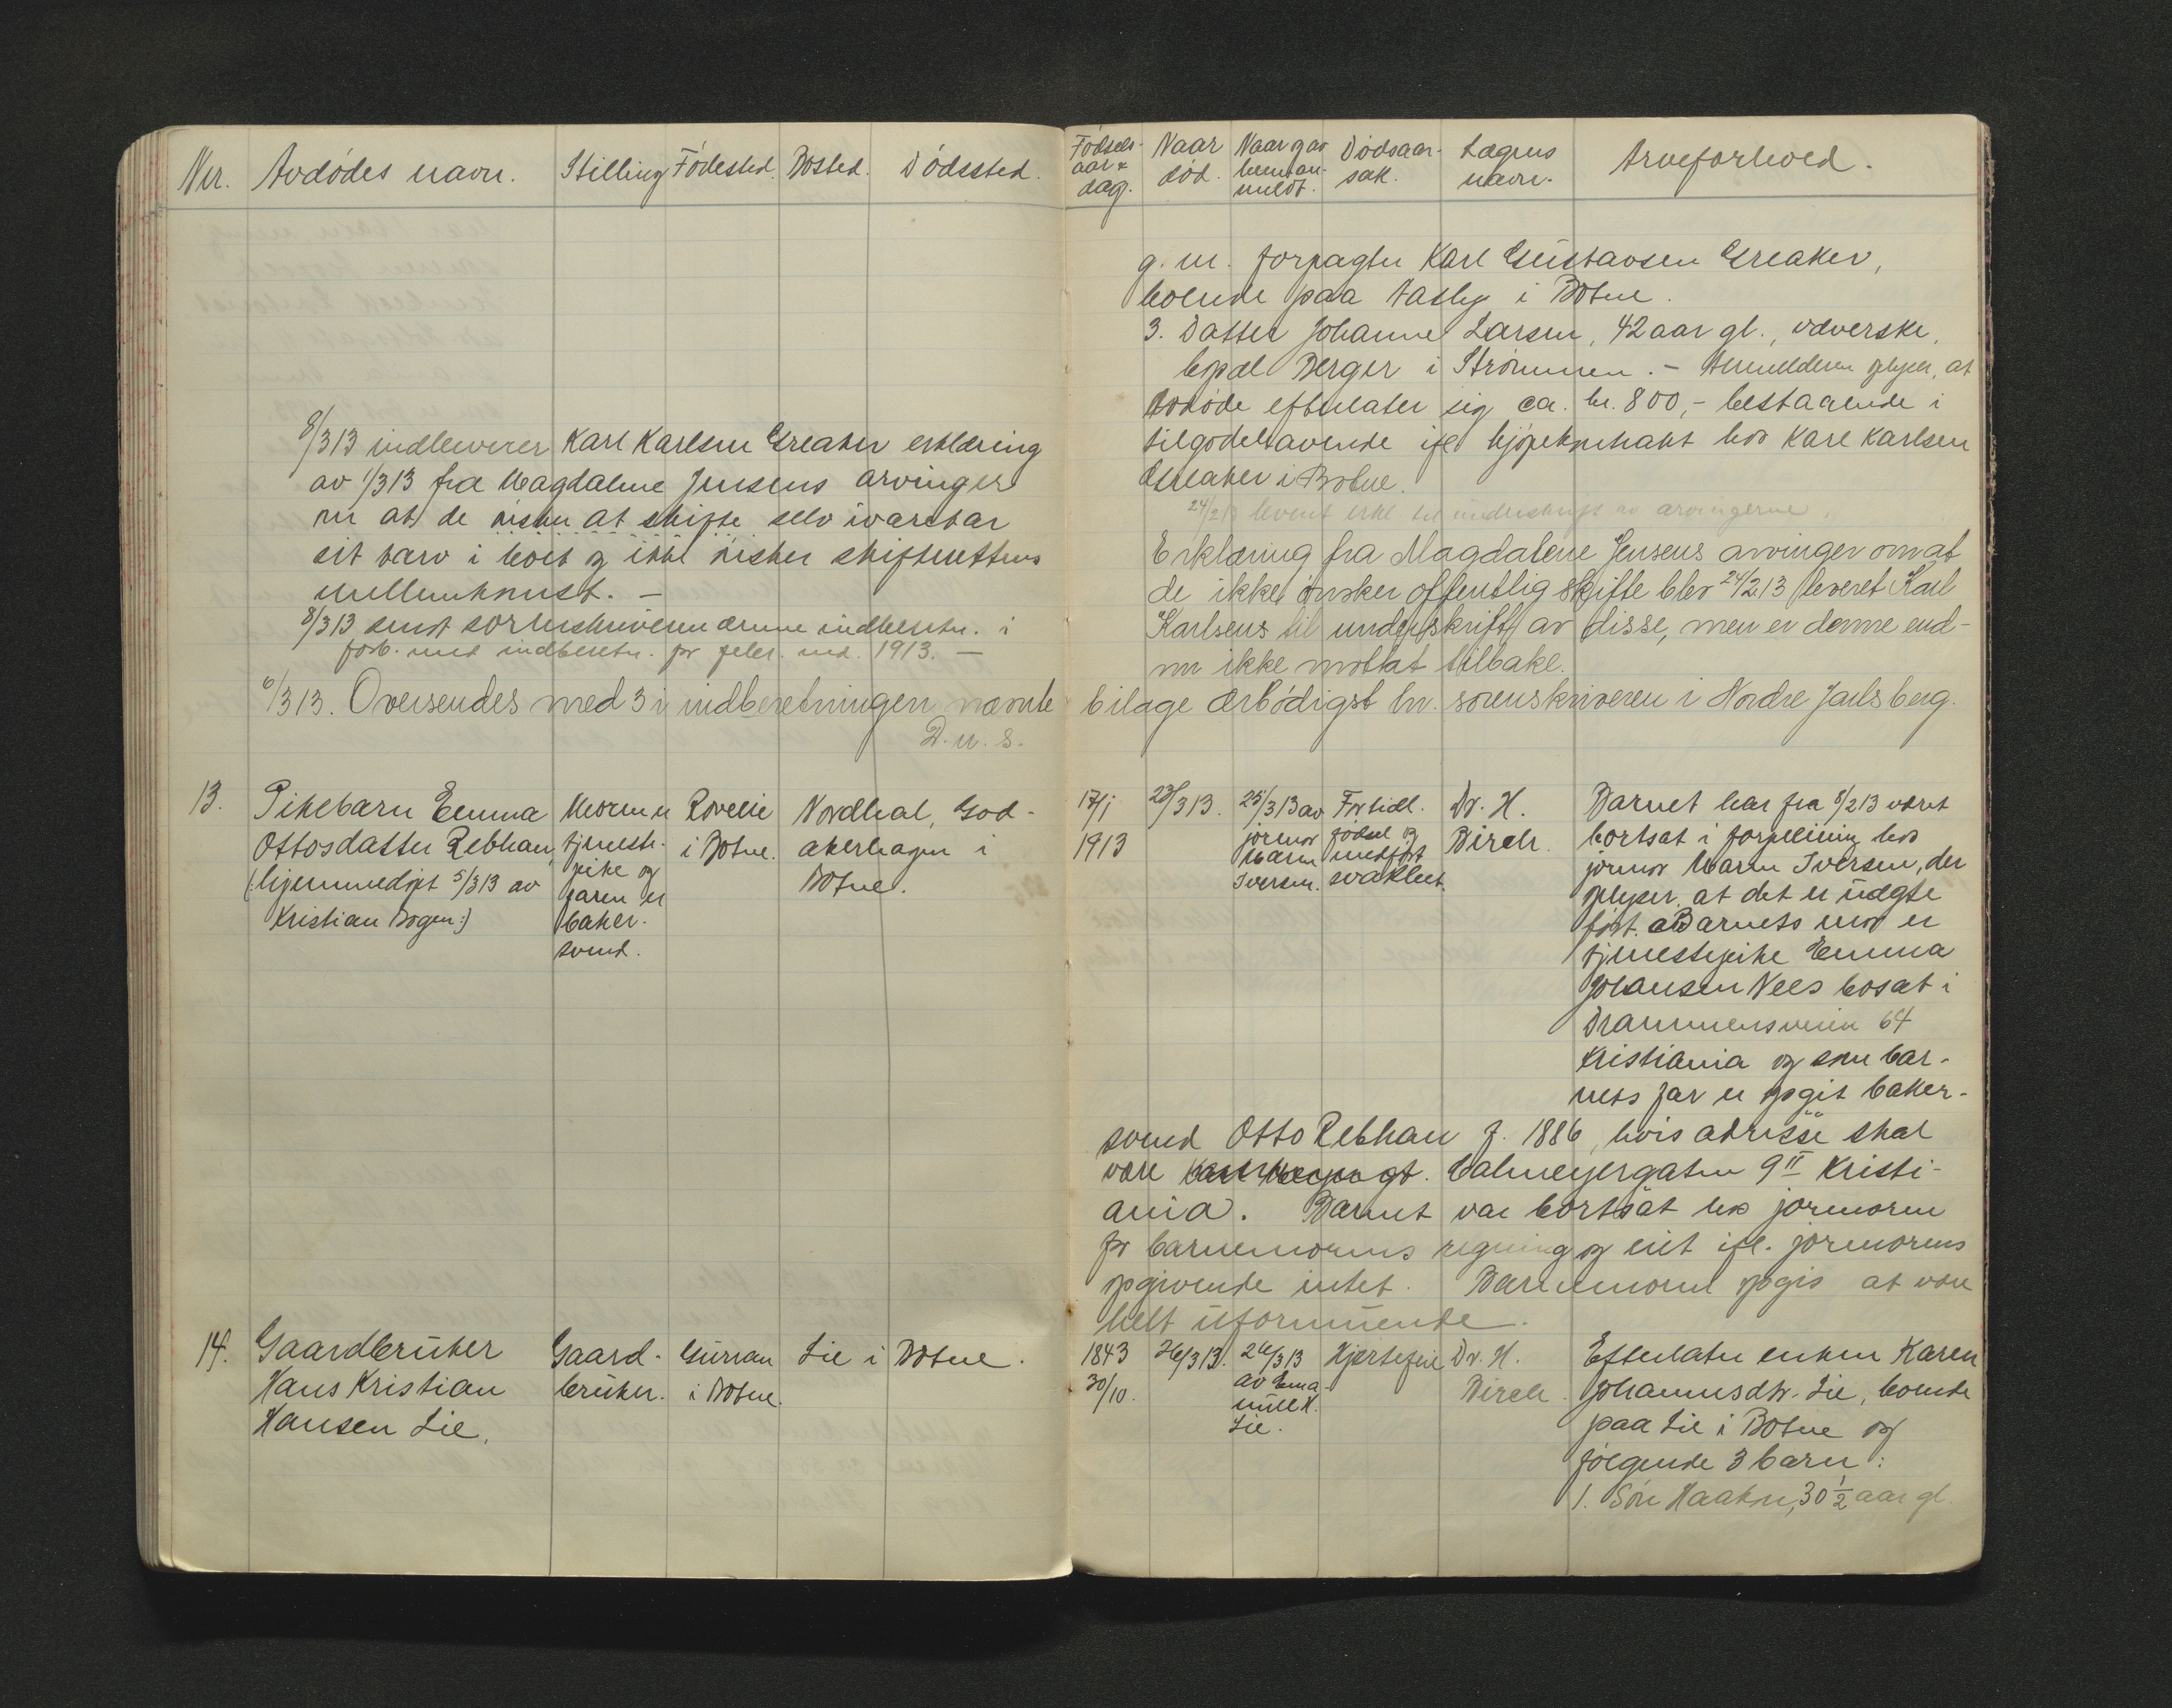 Nr. Avdödes navn. Stilling Födested. Bosted. Dödssted.
8/3 13 indleverer Karl Karlsen Greaker erklæring
av 1/3 13 fra Magdalene Jensens arvinger
om at de ønsker at skifte selv ivaretar
sit tarv i boet og ikke ønsker skifterettens
mellemkomst. —
8/3 13 sendt sorenskriveren denne indberetn. i
forb. med indberetn. for febr. md. 1913. —
6/3 13. Oversendes med 3 i indberetningen nævnte
D. u. s.
13. Pikebarn Emma Moren er Rovelie Nordhal, God-
Ottosdatter Rebhan, tjeneste- i Botne. akerhagen i
(: hjemmedøpt 5/3 13 av pike og Botne.
Kristian Bogen :) faren er
baker-
svend.
14. Gaardbruker Gaard- Gurran Lie i Botne.
Hans Kristian bruker. i Botne.
Hansen Lie.
Fødsels- Naar Naar og av Dødsaar- Lægens Arveforhold.
aar & död. hvem an- sak. navn.
dag. meldt.
g. m. forpagter Karl Gustavsen Greaker,
boende paa Aasly i Botne.
3. Datter Johanne Larsen, 42 aar gl., væverske,
bopæl Berger i Strömmen. – Anmelderen oplyser, at
Avdøde efterlater sig ca. kr. 800,- bestaaende i
tilgodehavende ifl. kjøpekontrakt hos Karl Karlsen
Greaker i Botne.
24/2 13 levert erkl. til underskrift av arvingerne.
Erklæring fra Magdalene Jensens arvinger om at
de ikke ønsker offentlig skifte blev 24/2 13 leveret Karl
Karlsens til underskrift av disse, men er denne end-
nu ikke mottat tilbake.
bilage ærbödigst hr. sorenskriveren i Nordre Jarlsberg.
17/1 23/3 13. 25/3 13 av For tidl. Dr. H. Barnet har fra 8/2 13 været
1913 jormor födsel og Birch. bortsat i forpleining hos
Maren medført jormor Maren Iversen, der
Iversen. svakhet. oplyser, at det er uegte
født. Barnets mor er
tjenestepike Emma
Johansen Nees bosat i
Drammensveien 64
Kristiania og som bar-
nets far er opgit baker-
svend Otto Rebhan f. 1886, hvis adresse skal
være Calmeyergaten 9 II Kristi-
ania. Barnet var bortsat hos jormoren
for barnemorens regning og eiet ifl. jormorens
opgivende intet. Barnemoren opgis at være
helt uformuende.
1843 26/3 13. 26/3 13 Hjertefeil Dr. H. Efterlater enken Karen
30/10. av Ema- Birch Johannesdtr. Lie, boende
nuel H. paa Lie i Botne og
Lie. følgende 3 barn:
1. Søn Haakon, 30 1/2 aar gl.